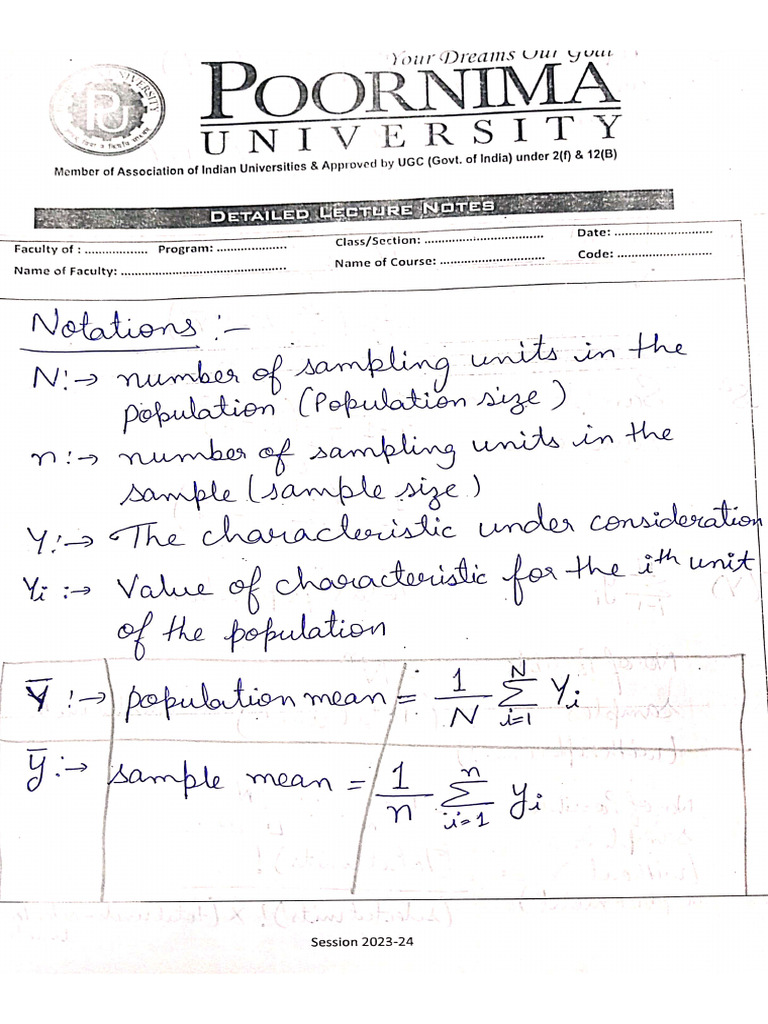 Your Dreams Our Goal
POORNIMA
UNIVERSITY
Member of Association of Indian Universities & Approved by UGC (Govt. of India) under 2(f) & 12(B)
DETAILED LECTURE NOTES
Faculty of : .................. Program: .................... Class/Section: .................................. Date: ............................
Name of Faculty: ............................................... Name of Course: .............................. Code: ...........................
Notations :-
N:→ number of sampling units in the
population (Population size)
n:→ number of sampling units in the
sample (sample size)
Y:→ The characteristic under consideration
Yi :→ Value of characteristic for the ith unit
of the population
Ȳ :→ population mean = 1/N ∑ᵢ₌₁ᴺ Yi
ȳ :→ sample mean = 1/n ∑ᵢ₌₁ⁿ yi
Session 2023-24